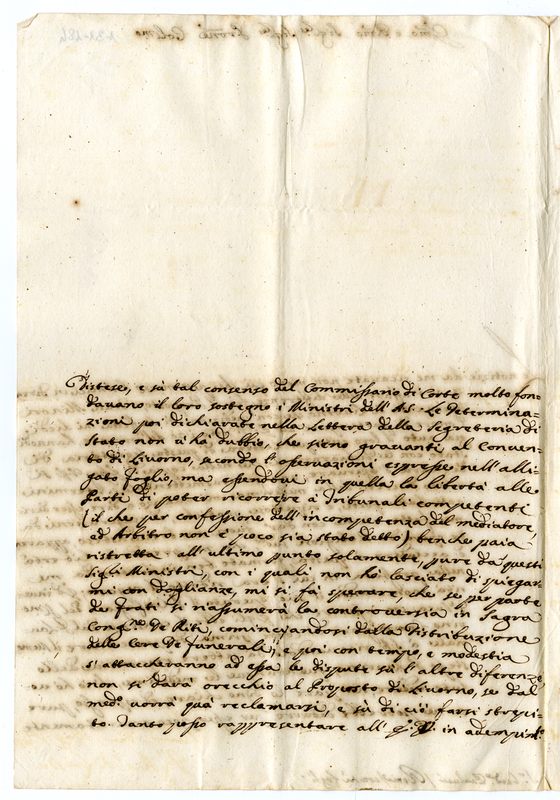 distese, e sù tal consenso del Commissario di Corte molto fon-
davano il loro sostegno i Ministri dell'A.S. Le determina-
zioni poi dichiarate nella Lettera della Segreteria di
Stato non v'hà dubbio, che sieno gravanti al Conven-
to di Livorno, secondo l'osservazioni espresse nell'alli-
gato foglio, ma essendovi in quella la libertà alle
Parti di poter ricorrere a Tribunali competenti
(il che per confessione dell'incompetenza del mediatore,
ed Arbitro non è poco sia stato detto) benche paia
ristretta all'ultimo punto solamente, pure da questi
Sig.ri Ministri, con i quali non hò lasciato di spiegar-
mi con doglianze, mi si fà sperare, che se per parte
de Frati si riassumerà la controversia in Sagra
Cong.ne De Riti, cominciandosi dalla Distribuzione
delle Cere De funerali; e poi con tempo, e modestia
s'attaccheranno ad essa le dispute sù l'altre diferenze
non si darà orecchio al Proposto di Livorno, se dal
med.o vorrà quà reclamarsi, e sù di ciò farsi strepi-
to. Tanto posso rappresentare all' in adempim.to